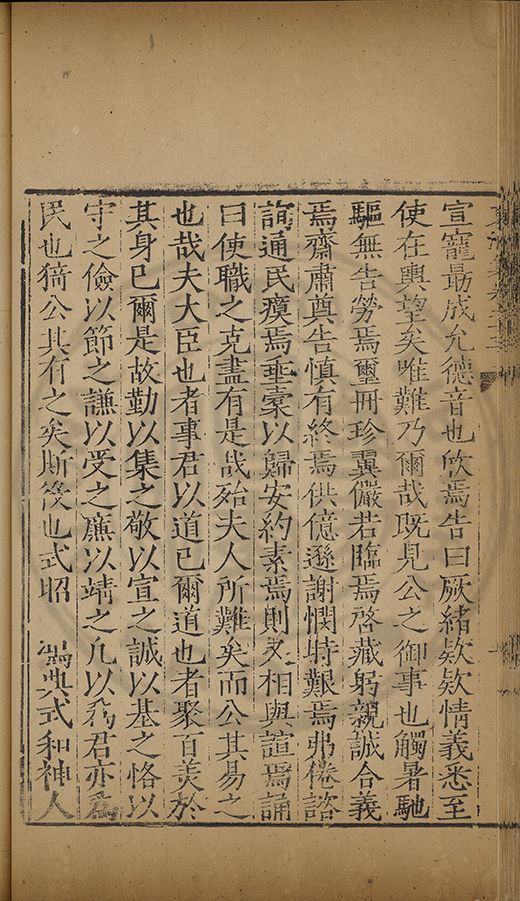 宣寵勗成允德音也欣焉告曰厥緒欵欵情義悉至
使在輿望矣唯難乃爾哉既見公之御事也觸暑馳
驅無告勞焉璽冊珍翼儼若臨焉啓藏躬親誠合義
焉齋肅奠告慎有終焉供億遜謝憫時艱焉弗倦諮
詢通民瘼焉垂槖以歸安約素焉則又相與諠焉誦
曰使職之克盡有是哉殆夫人所難矣而公其易之
也哉夫大臣也者事君以道已爾道也者聚百美於
其身已爾是故勤以集之敬以宣之誠以基之恪以
守之儉以節之謙以受之廉以靖之凡以爲君亦爲
民也猗公其有之矣斯役也式昭　鴻典式和神人